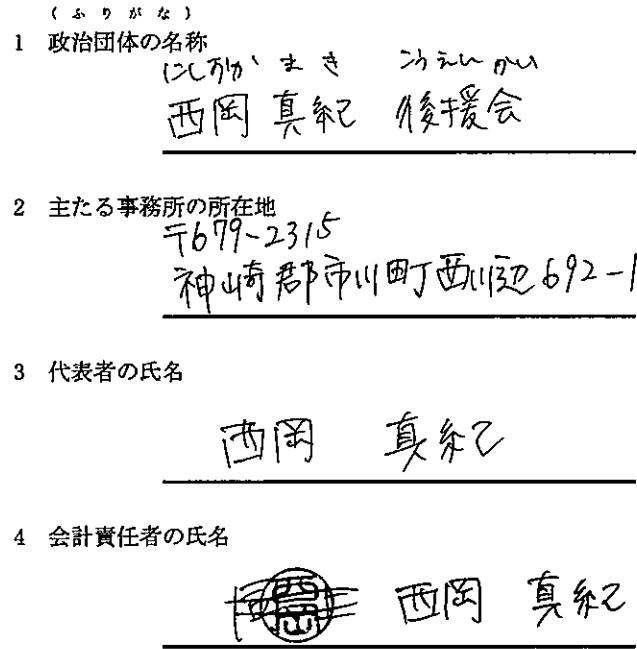 (ふりがな)
1 政治団体の名称
にしおか まき こうえんかい
西岡 真紀 後援会
2 主たる事務所の所在地
〒679-2315
神崎郡市川町西川辺692-1
3 代表者の氏名
西岡 真紀
4 会計責任者の氏名
西岡 西岡 真紀